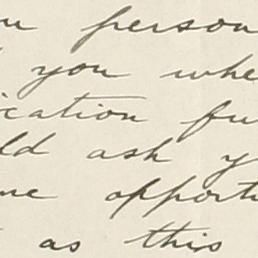 person
you whe
ication fu
ld ask y
me opportu
as this